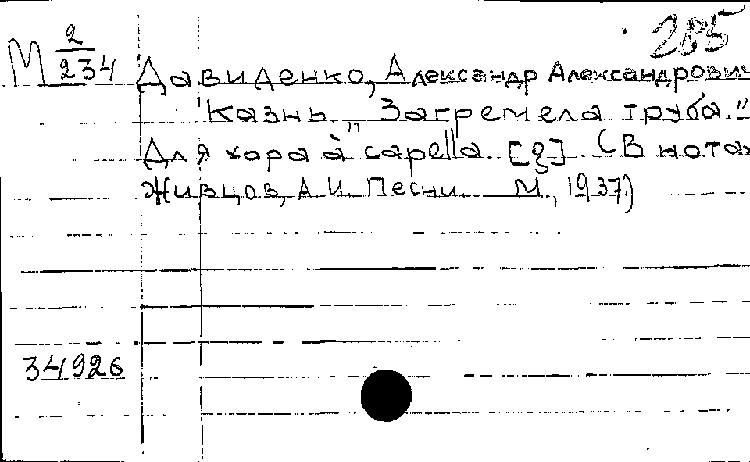 285
М 2/234 Давиденко, Александр Александрович
"Казнь". "Загремела труба."
Для хора à capella. [g] (В нотах
Живцов, А.И. Песни. М., 1937)
34926